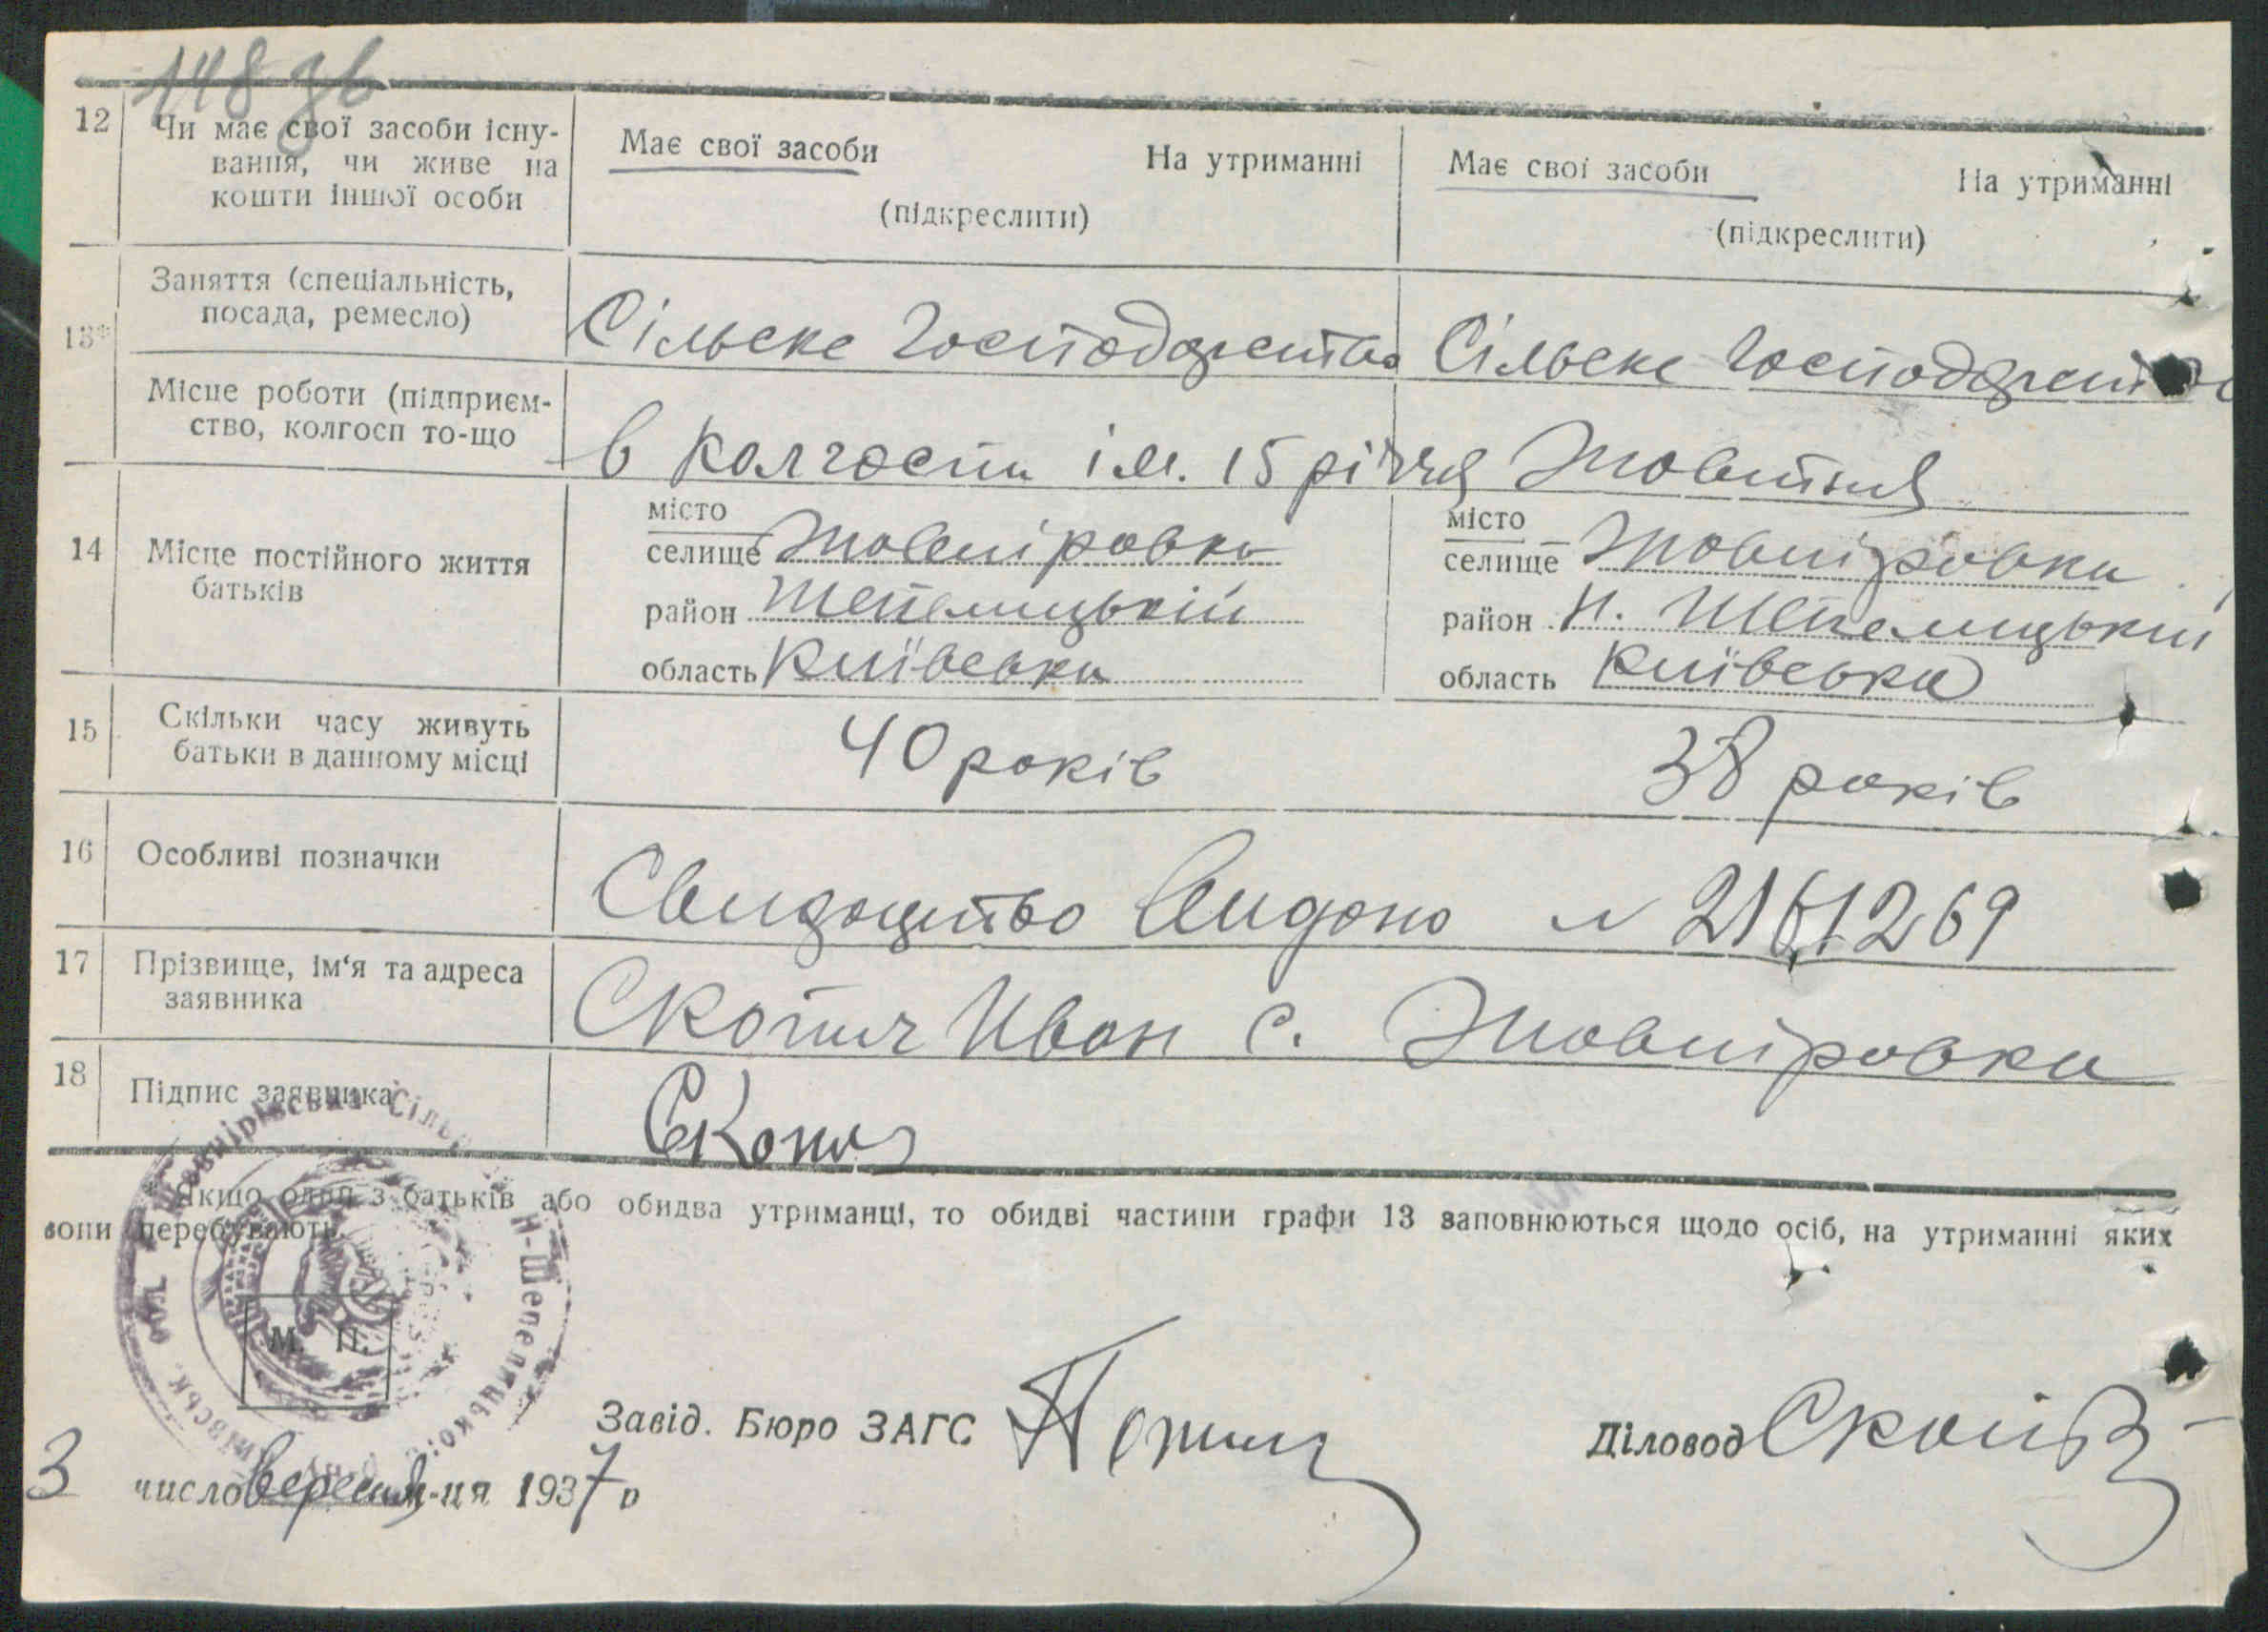 148 зв
12 Чи має свої засоби існу- Має свої засоби На утриманні Має свої засоби На утриманні
вання, чи живе на
кошти іншої особи (підкреслити) (підкреслити)
Заняття (спеціальність,
посада, ремесло) Сільске Господарство Сільске Господарство
13*
Місце роботи (підприєм-
ство, колгосп то-що в колгоспи ім. 15 річчя Жовтня
14 Місце постійного життя
батьків
місто місто
селище Товстий
район Шепелицькій район Н. Шепелицький
область Київська область Київська
15 Скільки часу живуть
батьки в данному місці 40 років 38 років
16 Особливі позначки Свидоцтво Видано № 2161269
17 Прізвище, ім'я та адреса
заявника Скопич Иван с.
18 Підпис заявника Скопич
* Якщо один з батьків або обидва утриманці, то обидві частини графи 13 заповнюються щодо осіб, на утриманні яких
вони перебувають.
Н-Шепелицького
М. П.
Завід. Бюро ЗАГС Діловод
3 число вересня м-ця 1937 р